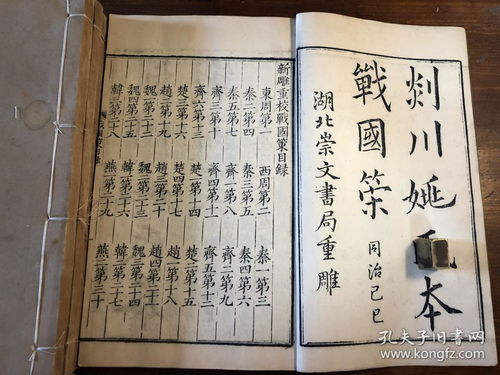 剡川姚氏本
戰國策
同治己巳
湖北崇文書局重雕
新雕重校戰國策目錄
東周第一 西周第二 秦一第三
秦二第四 秦三第五 秦四第六
秦五第七 齊一第八 齊二第九
齊三第十 齊四第十一 齊五第十二
齊六第十三 楚一第十四 楚二第十五
楚三第十六 楚四第十七 趙一第十八
趙二第十九 趙三第二十 趙四第二十一
魏一第二十二 魏二第二十三 魏三第二十四
魏四第二十五 韓一第二十六 韓二第二十七
韓三第二十八 燕一第二十九 燕二第三十
孔夫子旧书网
www.kongfz.com